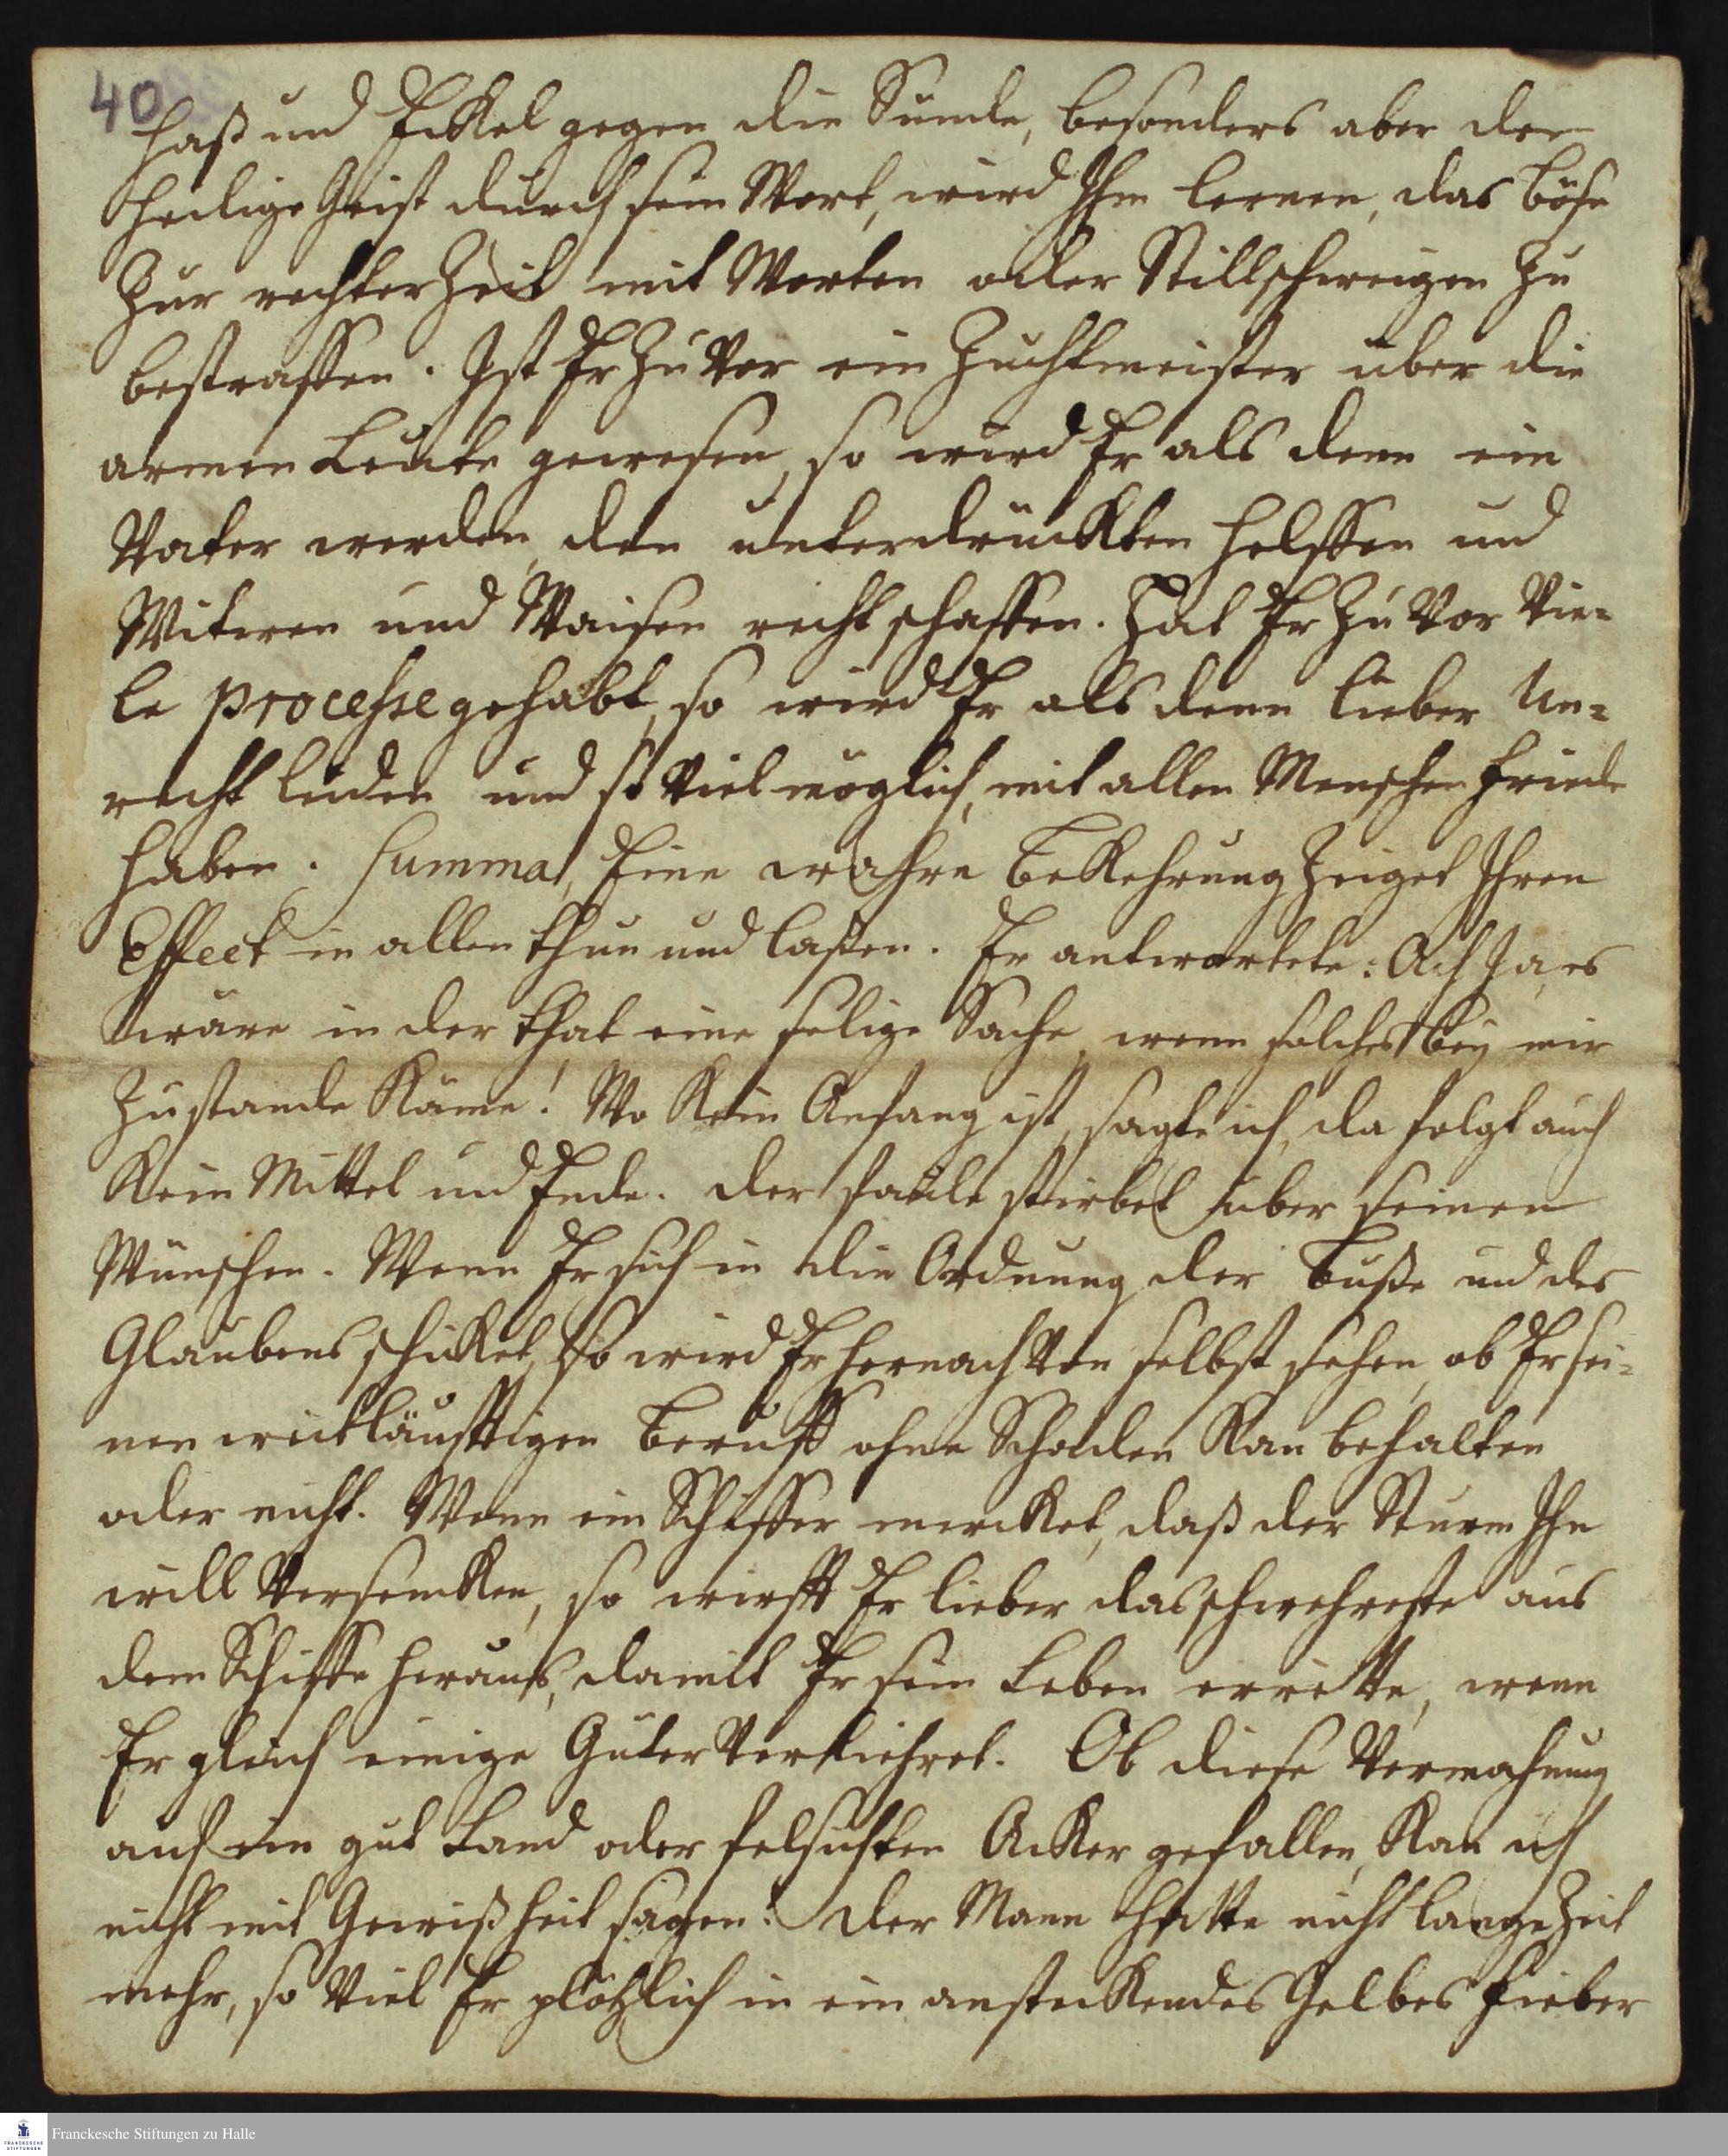 40
Haß und Eckel gegen die Sünde, besonders aber der
Heilige Geist durch sein Wort, wird Ihn lernen, das böse
zur rechter Zeit mit Worten oder Stillschweigen zu
bestraffen. Ist Er zu vor ein Zuchtmeister über die
armen Leüte gewesen, so wird Er als denn ein
Vater werden, den unterdrückten helffen und
Witwen und Waisen recht schaffen. Hat Er zu vor vie=
le processe gehabt, so wird Er als denn lieber Un=
recht leiden und so viel möglich, mit allen Menschen Friede
haben. Summa, Eine wahre Bekehrung zeiget Ihren
Effect in allen thun und laßen. Er antwortete: Ach Ja, es
wäre in der that eine selige Sache, wenn solches bey mir
zu stande käme! Wo kein Anfang ist, sagte ich, da folgt auch
kein Mittel und Ende. der faule stirbet über seinen
Wünschen. Wenn Er sich in die Ordnung der Buße und des
Glaubens schicket, so wird Er hernach von selbst sehen, ob Er sei=
nen weitläufftigen Beruff ohne Schaden kan behalten
oder nicht. Wenn ein Schiffer mercket, daß der Sturm Ihn
will versencken, so wirfft Er lieber das schwehreste aus
dem Schiffe heraus, damit Er sein Leben errette, wenn
Er gleich einige Güter verliehret. Ob diese Vermahnung
auf ein gut Land oder felsichten Acker gefallen, kan ich
nicht mit Gewißheit sagen: der Mann hatte nicht lange Zeit
mehr, so viel Er plötzlich in ein ansteckendes Gelbes Fieber
Franckesche Stiftungen zu Halle